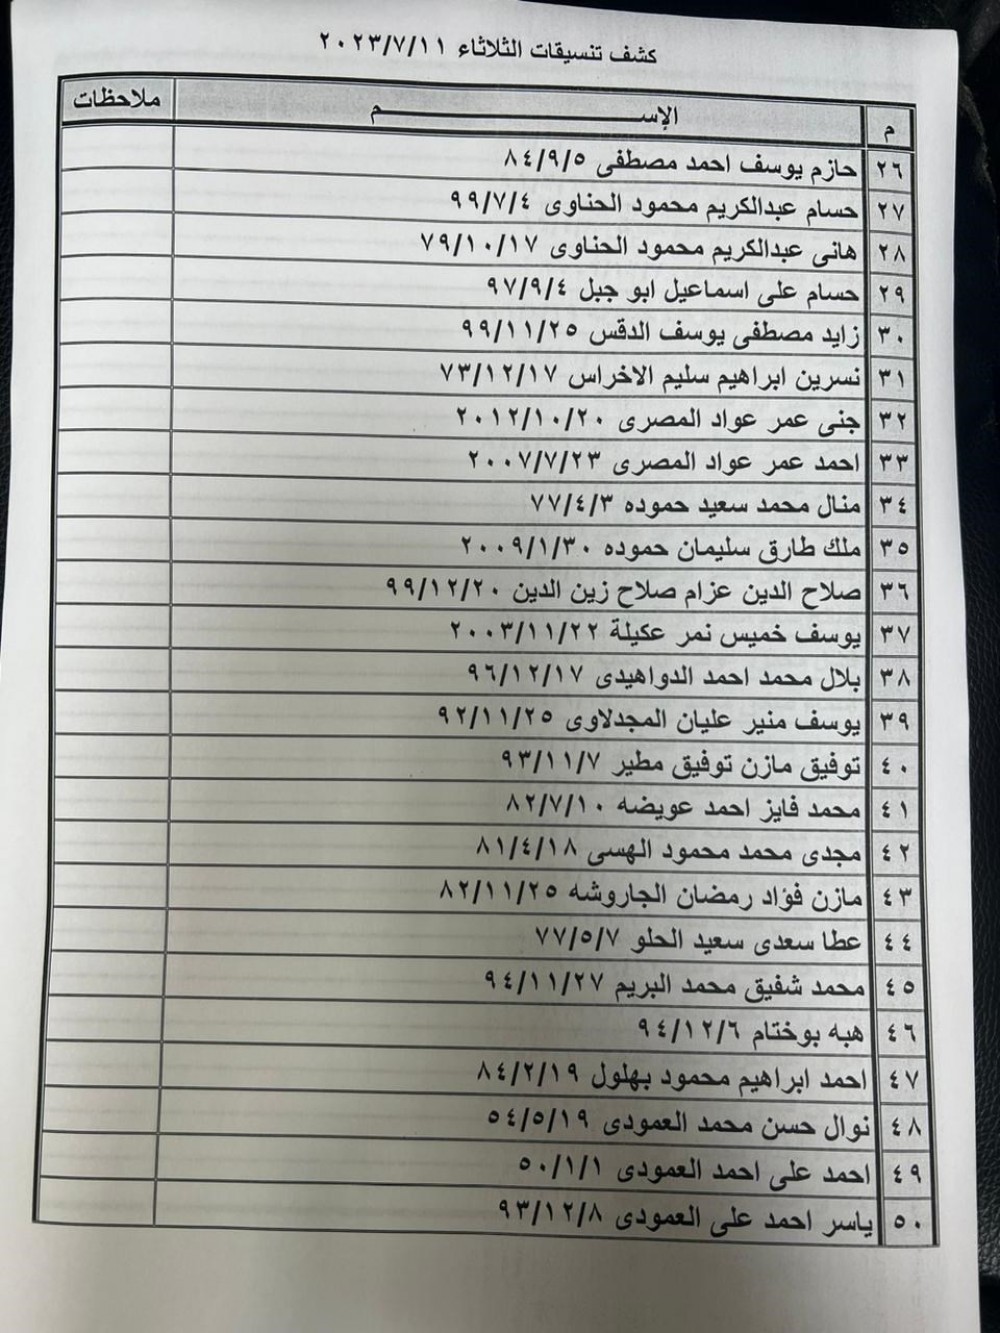 كشف تنسيقات الثلاثاء ٢٠٢٣/٧/١١
م الإســـــــم ملاحظات
٢٦ حازم يوسف احمد مصطفى ٨٤/٩/٥
٢٧ حسام عبدالكريم محمود الحناوى ٩٩/٧/٤
٢٨ هانى عبدالكريم محمود الحناوى ٧٩/١٠/١٧
٢٩ حسام على اسماعيل ابو جبل ٩٧/٩/٤
٣٠ زايد مصطفى يوسف الدقس ٩٩/١١/٢٥
٣١ نسرين ابراهيم سليم الاخراس ٧٣/١٢/١٧
٣٢ جنى عمر عواد المصرى ٢٠١٢/١٠/٢٠
٣٣ احمد عمر عواد المصرى ٢٠٠٧/٧/٢٣
٣٤ منال محمد سعيد حموده ٧٧/٤/٣
٣٥ ملك طارق سليمان حموده ٢٠٠٩/١/٣٠
٣٦ صلاح الدين عزام صلاح زين الدين ٩٩/١٢/٢٠
٣٧ يوسف خميس نمر عكيلة ٢٠٠٣/١١/٢٢
٣٨ بلال محمد احمد الدواهيدى ٩٦/١٢/١٧
٣٩ يوسف منير عليان المجدلاوى ٩٢/١١/٢٥
٤٠ توفيق مازن توفيق مطير ٩٣/١١/٧
٤١ محمد فايز احمد عويضه ٨٢/٧/١٠
٤٢ مجدى محمد محمود الهسى ٨١/٤/١٨
٤٣ مازن فؤاد رمضان الجاروشه ٨٢/١١/٢٥
٤٤ عطا سعدى سعيد الحلو ٧٧/٥/٧
٤٥ محمد شفيق محمد البريم ٩٤/١١/٢٧
٤٦ هبه بوختام ٩٤/١٢/٦
٤٧ احمد ابراهيم محمود بهلول ٨٤/٢/١٩
٤٨ نوال حسن محمد العمودى ٥٤/٥/١٩
٤٩ احمد على احمد العمودى ٥٠/١/١
٥٠ ياسر احمد على العمودى ٩٣/١٢/٨